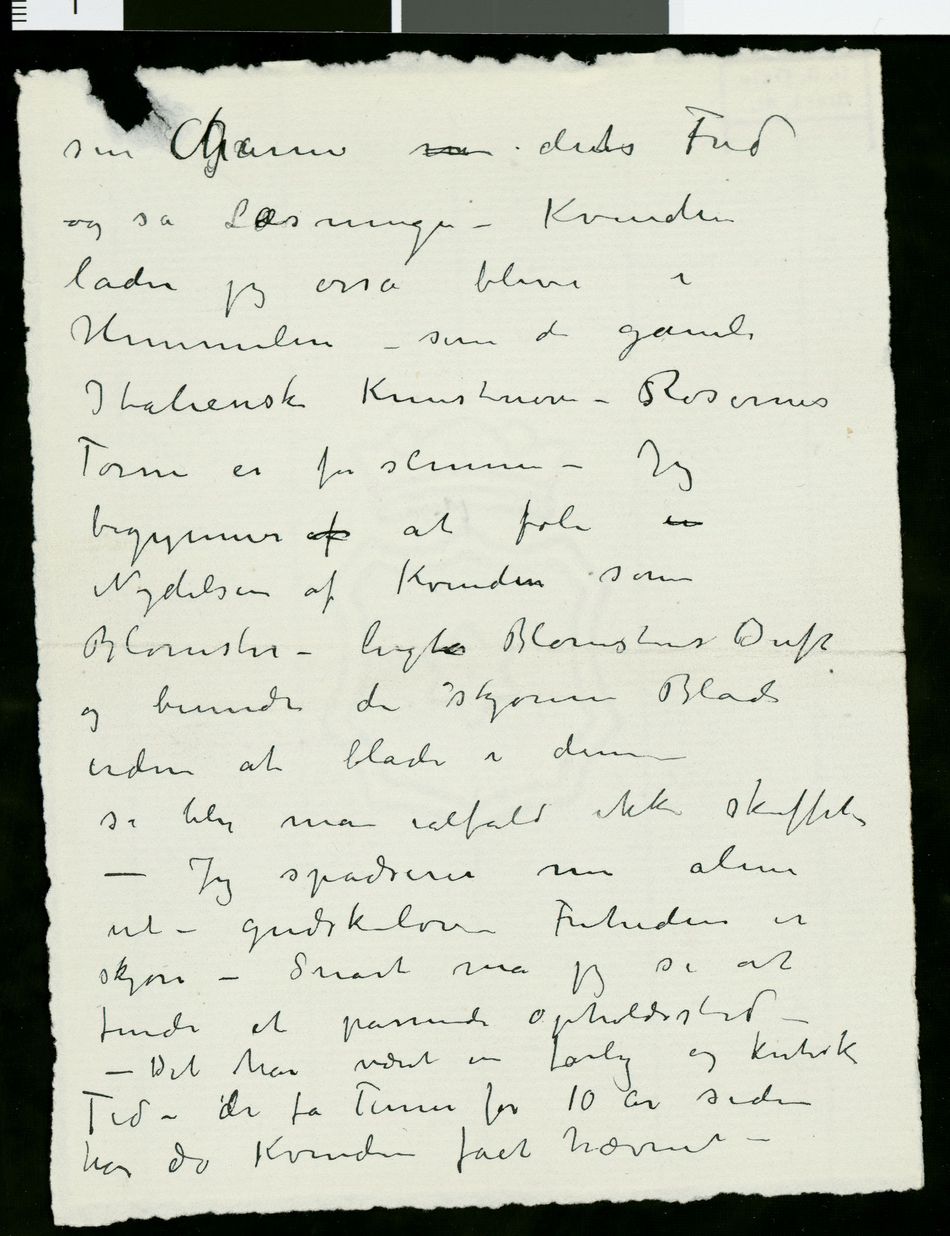 sin Charme ~~en~~ – dets Fred
og så Læsningen – Kvinden
lader jeg også blive i
Himmelen – som de gamle
Italienske Kunstnere – Rosernes
Torne er for slemme – Jeg
begynner ~~af~~ at føle ~~en~~
Nydelsen af Kvinden som
Blomster – lugte Blomstens Duft
og beundre de skjønne Blade
uden at blade i dem
så blir man ialfald ikke skuffet
– Jeg spadserer nu alene
ut – gudskelov – Friheden er
skjøn – Snart må jeg se at
finde et passende opholdssted –
– Det har været en farlig og kritisk
Tid – de få Timer for 10 år siden
har da Kvinden fået hævnet –